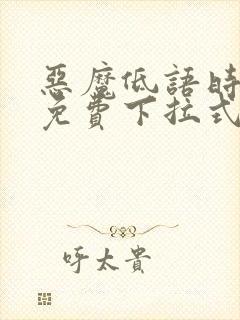 惡魔低語時
免費下拉式
呼太貴